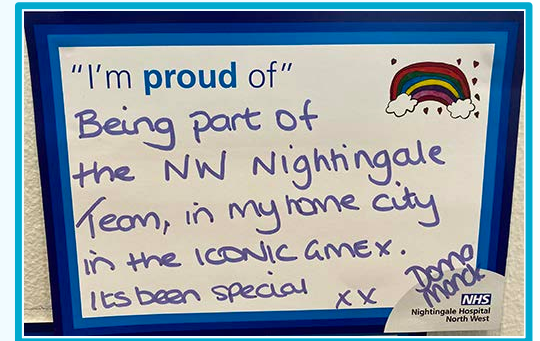 "I'm proud of"
Being part of
the NW Nightingale
Team, in my home city
in the ICONIC GMEX.
Its been special xx
Donna
NHS
Nightingale Hospital
North West